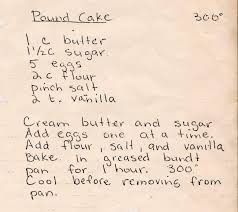 Pound Cake 300°
1 c butter
1 1/2 c sugar
5 eggs
2 c flour
pinch salt
2 t. vanilla
Cream butter and sugar
Add eggs one at a time.
Add flour, salt, and vanilla
Bake in greased bundt
pan for 1 hour. 300°
Cool before removing from
pan.